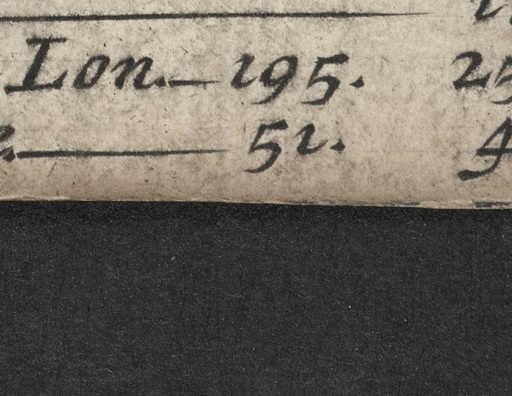 Lon. — 195. 25
51.